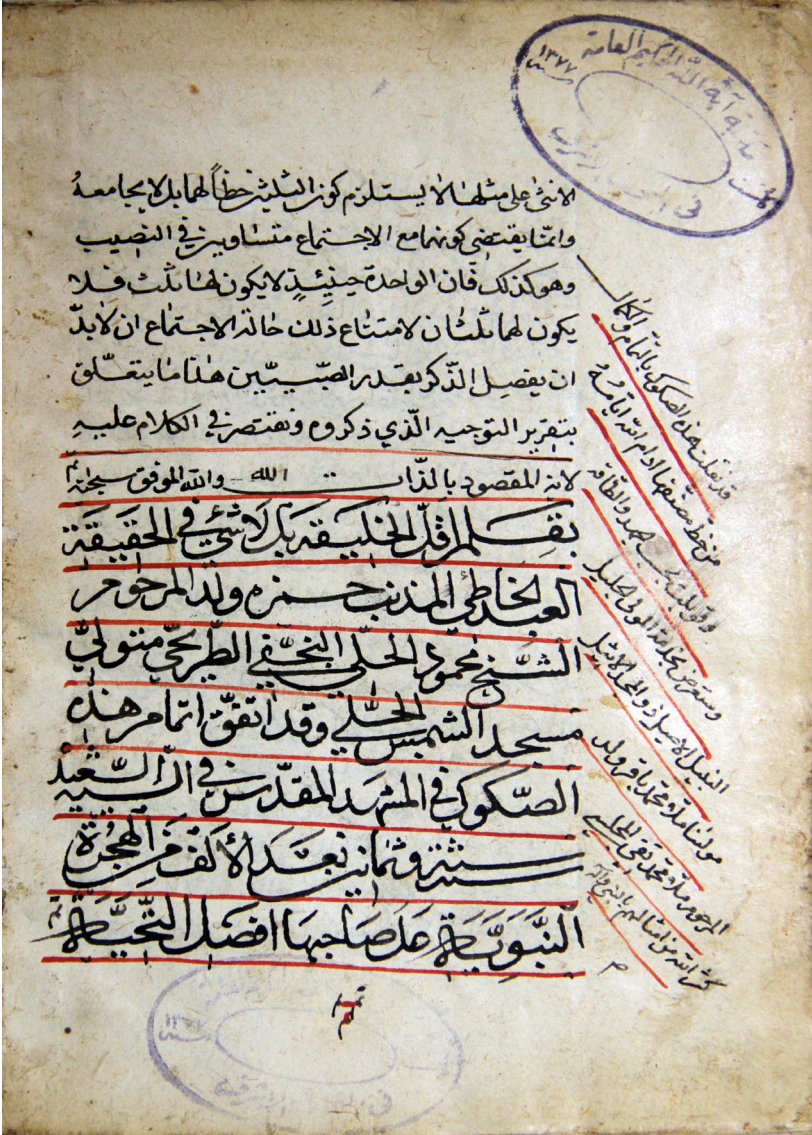 الانثى على مثلها لا يستلزم كون الثلثين حظاً لهما بل لا يجامعه
وانما يقتضى كونهما مع الاجتماع متساويين في النصيب
وهو كذلك فان الواحدة حينئذٍ لا يكون لها ثلث فلا
يكون لهما ثلثان لامتناع ذلك حالة الاجتماع ان لا بدّ
ان يفصل الذكر بقدر الصبيتين هذا ما يتعلّق
بتقرير التوجيه الّذي ذكروه ونقتصر في الكلام عليه
لانه المقصود بالذات والله الموفق سبحانه
بقلم اقلّ الخليقة بل لا شئ في الحقيقة
العبد الخاطئ المذنب حمزه ولد المرحوم
الشيخ محمود الحلّي النجفي الطريحي متولّي
مسجد الشمس الحلّي وقد اتفق اتمام هذه
الصكوك في المشهد المقدّس في السنة
ستة وثمانين بعد الألف من الهجرة
النبويّة على صاحبها افضل التحيّة
قد نقلت هذه الصكوك بالتمام والكمال
من خط مصنفها ادام الله ايامه
وقوبلت بحسب الجهد والطاقة
المولى الجليل
النبيل الاصيل ذو المجد الاثيل
مولانا ملا محمد باقر ولد
المرحوم ملا محمد تقي المجلسي
كثر الله من امثالهم بالنبي وآله
مكتبة آية الله الحكيم العامة
سنة ١٣٧٧
في النجف الاشرف